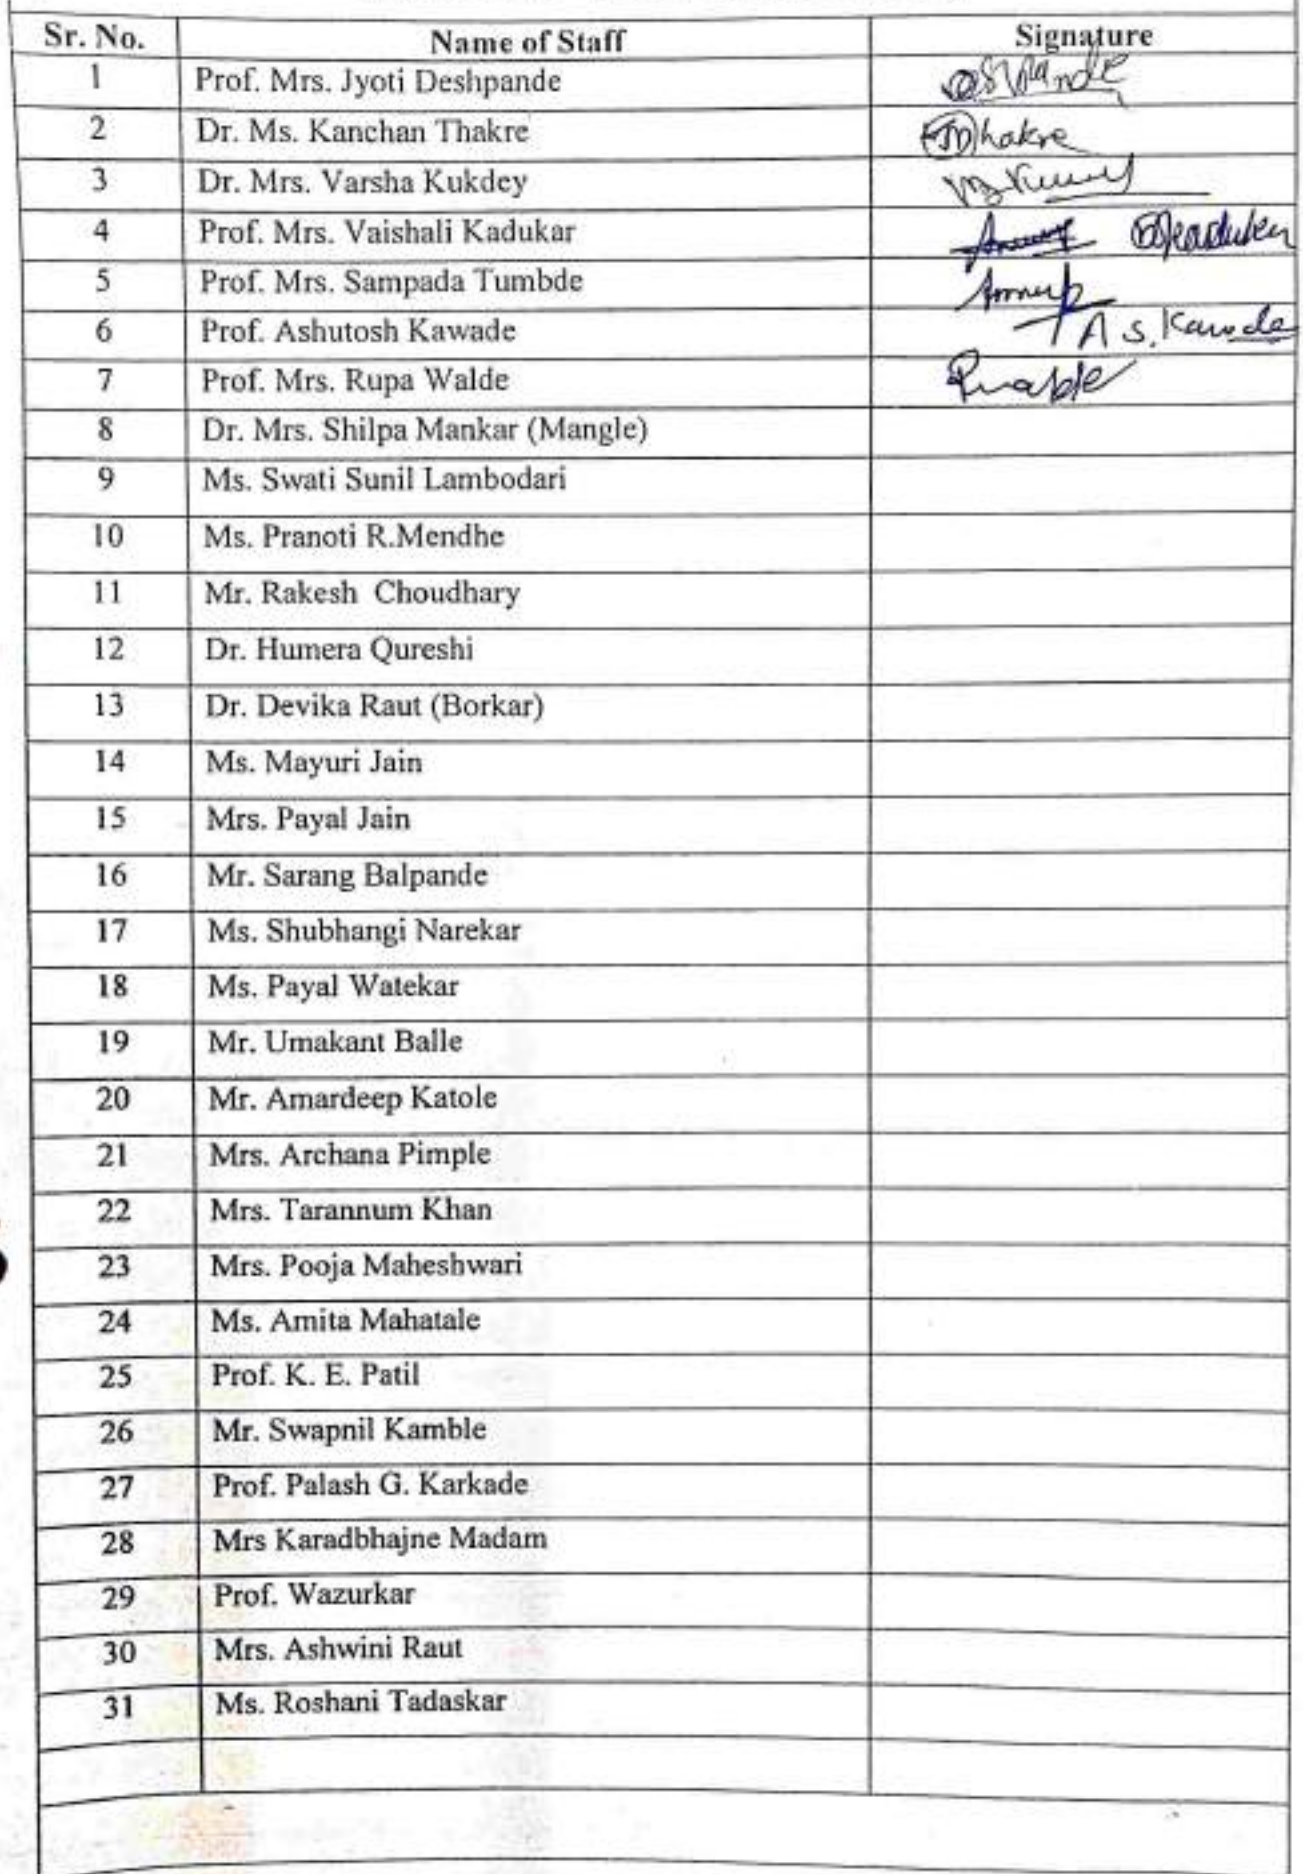 Sr. No. Name of Staff Signature
1 Prof. Mrs. Jyoti Deshpande
2 Dr. Ms. Kanchan Thakre Thakre
3 Dr. Mrs. Varsha Kukdey
4 Prof. Mrs. Vaishali Kadukar
5 Prof. Mrs. Sampada Tumbde
6 Prof. Ashutosh Kawade A S. Kawade
7 Prof. Mrs. Rupa Walde
8 Dr. Mrs. Shilpa Mankar (Mangle)
9 Ms. Swati Sunil Lambodari
10 Ms. Pranoti R.Mendhe
11 Mr. Rakesh Choudhary
12 Dr. Humera Qureshi
13 Dr. Devika Raut (Borkar)
14 Ms. Mayuri Jain
15 Mrs. Payal Jain
16 Mr. Sarang Balpande
17 Ms. Shubhangi Narekar
18 Ms. Payal Watekar
19 Mr. Umakant Balle
20 Mr. Amardeep Katole
21 Mrs. Archana Pimple
22 Mrs. Tarannum Khan
23 Mrs. Pooja Maheshwari
24 Ms. Amita Mahatale
25 Prof. K. E. Patil
26 Mr. Swapnil Kamble
27 Prof. Palash G. Karkade
28 Mrs Karadbhajne Madam
29 Prof. Wazurkar
30 Mrs. Ashwini Raut
31 Ms. Roshani Tadaskar